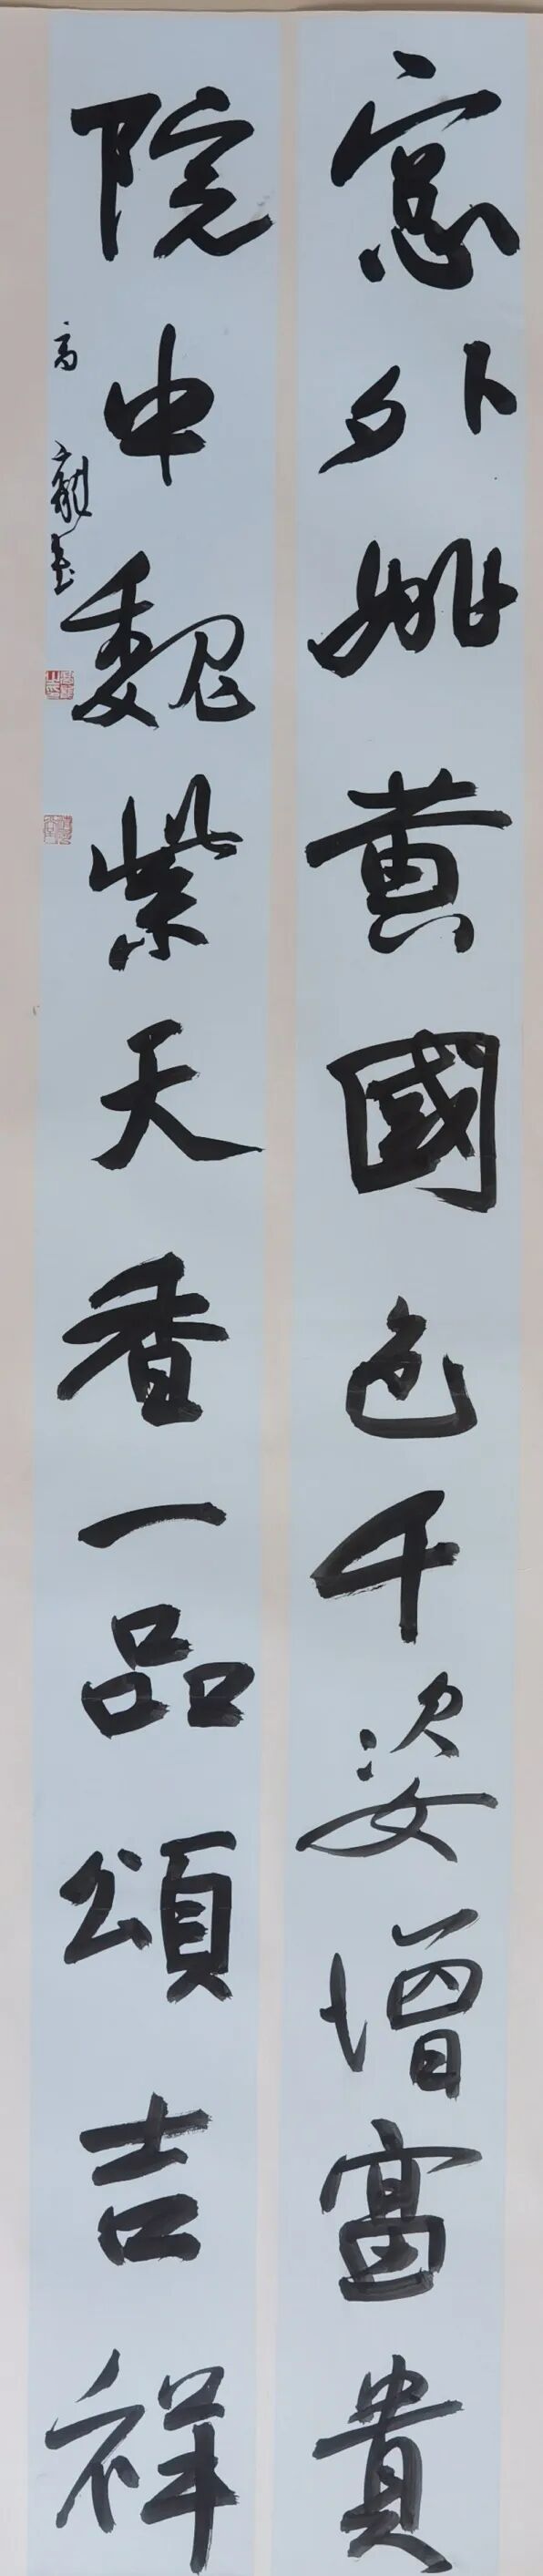 窓外姚黄國色千姿增富貴
院中魏紫天香一品頌吉祥
高